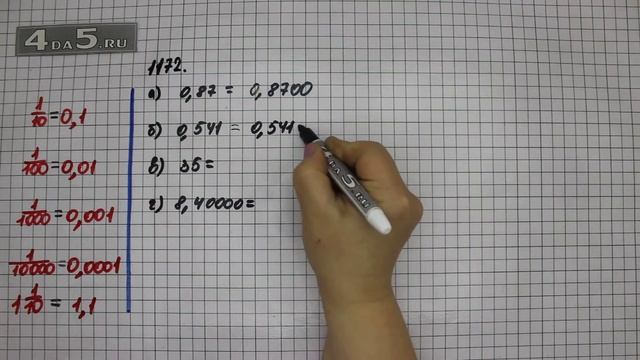 4DA5.RU
1172.
1/10 = 0,1
1/100 = 0,01
1/1000 = 0,001
1/10000 = 0,0001
1 1/10 = 1,1
а) 0,87 = 0,8700
б) 0,541 = 0,541
в) 35 =
г) 8,40000 =
DA5.RU